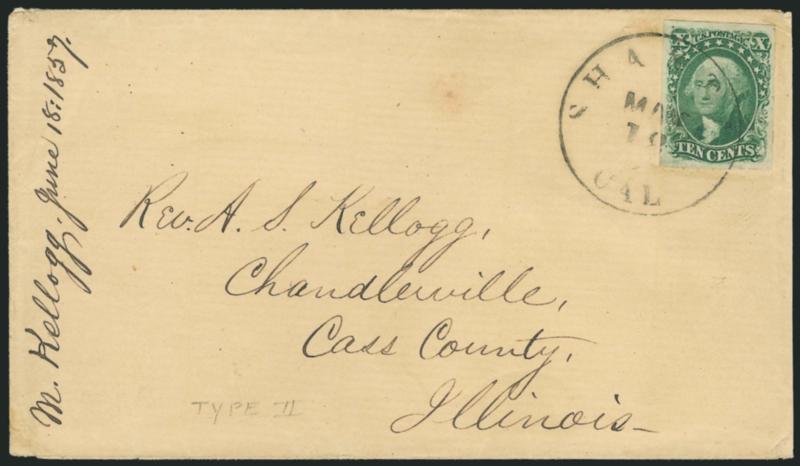 M. Kellogg. June 18:1857.
SHA
CAL
X U.S. POSTAGE X
TEN CENTS
Rev. A. S. Kellogg,
Chandlerville,
Cass County,
Illinois
TYPE II